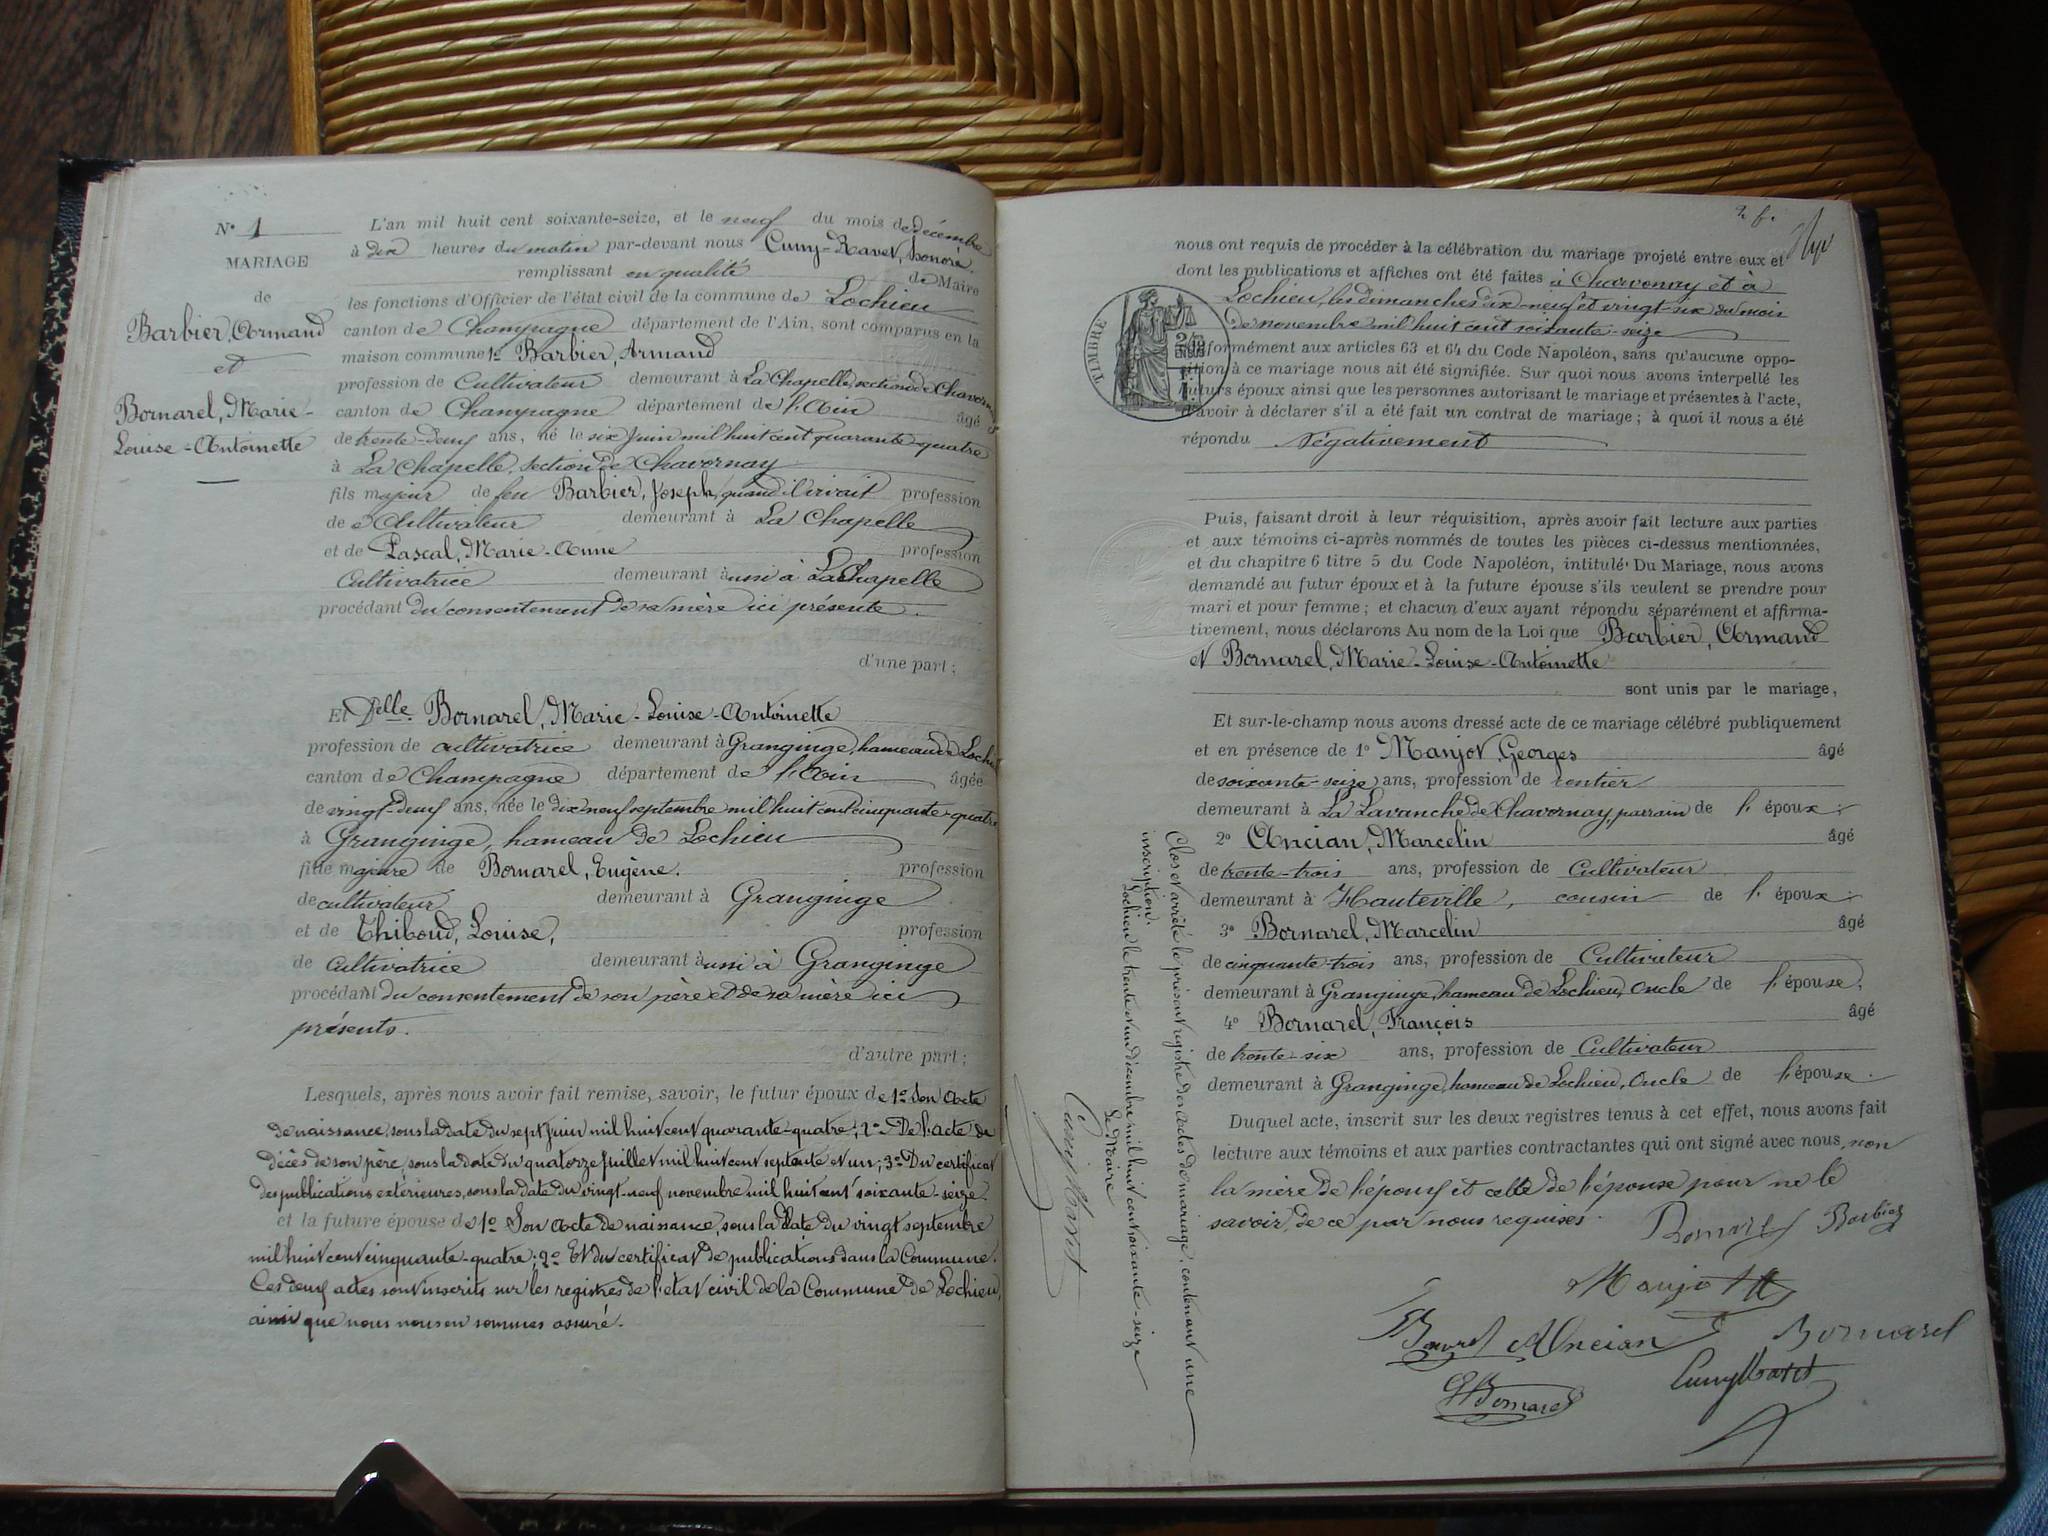 N° 1
MARIAGE
de
Barbier, Armand
et
Bornarel, Marie-
Louise-Antoinette
L'an mil huit cent soixante-seize, et le neuf du mois de décembre
à dix heures du matin par-devant nous Cuny-Ravet, honoré,
remplissant en qualité de Maire
les fonctions d'Officier de l'état civil de la commune de Lochieu
canton de Champagne département de l'Ain, sont comparus en la
maison commune 1° Barbier, Armand
profession de Cultivateur demeurant à La Chapelle, section de Chavornay
canton de Champagne département de l'Ain âgé
de trente-deux ans, né le six Juin mil huit cent quarante-quatre
à La Chapelle, section de Chavornay
fils majeur de feu Barbier, Joseph, quand il vivait profession
de Cultivateur demeurant à La Chapelle
et de Pascal, Marie-Anne profession
Cultivatrice demeurant aussi à La Chapelle
procédant du consentement de sa mère ici présente.
d'une part;
Et Delle Bornarel, Marie-Louise-Antoinette
profession de cultivatrice demeurant à Granginge, hameau de Lochieu
canton de Champagne département de l'Ain âgée
de vingt-deux ans, née le dix-neuf septembre mil huit cent cinquante-quatre
à Granginge, hameau de Lochieu
fille majeure de Bornarel, Eugène. profession
de cultivateur demeurant à Granginge
et de Thiboud, Louise, profession
de cultivatrice demeurant aussi à Granginge
procédant du consentement de son père et de sa mère ici
présents.
d'autre part;
Lesquels, après nous avoir fait remise, savoir, le futur époux de 1° Son Acte
de naissance, sous la date du sept Juin mil huit cent quarante-quatre; 2° De l'acte de
décès de son père, sous la date du quatorze Juillet mil huit cent septante et un; 3° Du certificat
des publications extérieures, sous la date du vingt-neuf novembre mil huit cent soixante-seize.
et la future épouse de 1° Son Acte de naissance, sous la date du vingt septembre
mil huit cent cinquante-quatre; 2° Et du certificat de publications dans la Commune.
Ces deux actes sont inscrits sur les registres de l'état civil de la Commune de Lochieu,
ainsi que nous nous en sommes assuré.
2 f.
nous ont requis de procéder à la célébration du mariage projeté entre eux et
dont les publications et affiches ont été faites à Charvonay et à
Lochieu, les dimanches dix-neuf et vingt-six du mois
de novembre mil huit cent soixante-seize
TIMBRE
conformément aux articles 63 et 64 du Code Napoléon, sans qu'aucune oppo-
sition à ce mariage nous ait été signifiée. Sur quoi nous avons interpellé les
futurs époux ainsi que les personnes autorisant le mariage et présentes à l'acte,
d'avoir à déclarer s'il a été fait un contrat de mariage; à quoi il nous a été
répondu Négativement
Puis, faisant droit à leur réquisition, après avoir fait lecture aux parties
et aux témoins ci-après nommés de toutes les pièces ci-dessus mentionnées,
et du chapitre 6 titre 5 du Code Napoléon, intitulé Du Mariage, nous avons
demandé au futur époux et à la future épouse s'ils veulent se prendre pour
mari et pour femme; et chacun d'eux ayant répondu séparément et affirma-
tivement, nous déclarons Au nom de la Loi que Barbier, Armand
et Bornarel, Marie-Louise-Antoinette
sont unis par le mariage,
Et sur-le-champ nous avons dressé acte de ce mariage célébré publiquement
et en présence de 1° Manjot, Georges âgé
de soixante-seize ans, profession de rentier
demeurant à La Lavanche de Chavornay, parrain de l'époux;
2° Ancian, Marcelin âgé
de trente-trois ans, profession de Cultivateur
demeurant à Hauteville, cousin de l'époux;
3° Bornarel, Marcelin âgé
de cinquante-trois ans, profession de Cultivateur
demeurant à Granginge, hameau de Lochieu, Oncle de l'épouse;
4° Bornarel, François âgé
de trente-six ans, profession de Cultivateur
demeurant à Granginge, hameau de Lochieu, Oncle de l'épouse.
Duquel acte, inscrit sur les deux registres tenus à cet effet, nous avons fait
lecture aux témoins et aux parties contractantes qui ont signé avec nous, non
la mère de l'époux et celle de l'épouse pour ne le
savoir, de ce par nous requises.
Barbier
Manjot
Ancian
Bornarel
Bornarel
Cuny Ravet
Clos et arrêté le présent registre des actes de mariage, contenant une
inscription.
Lochieu le trente et un décembre mil huit cent soixante-seize
Le Maire
Cuny Ravet